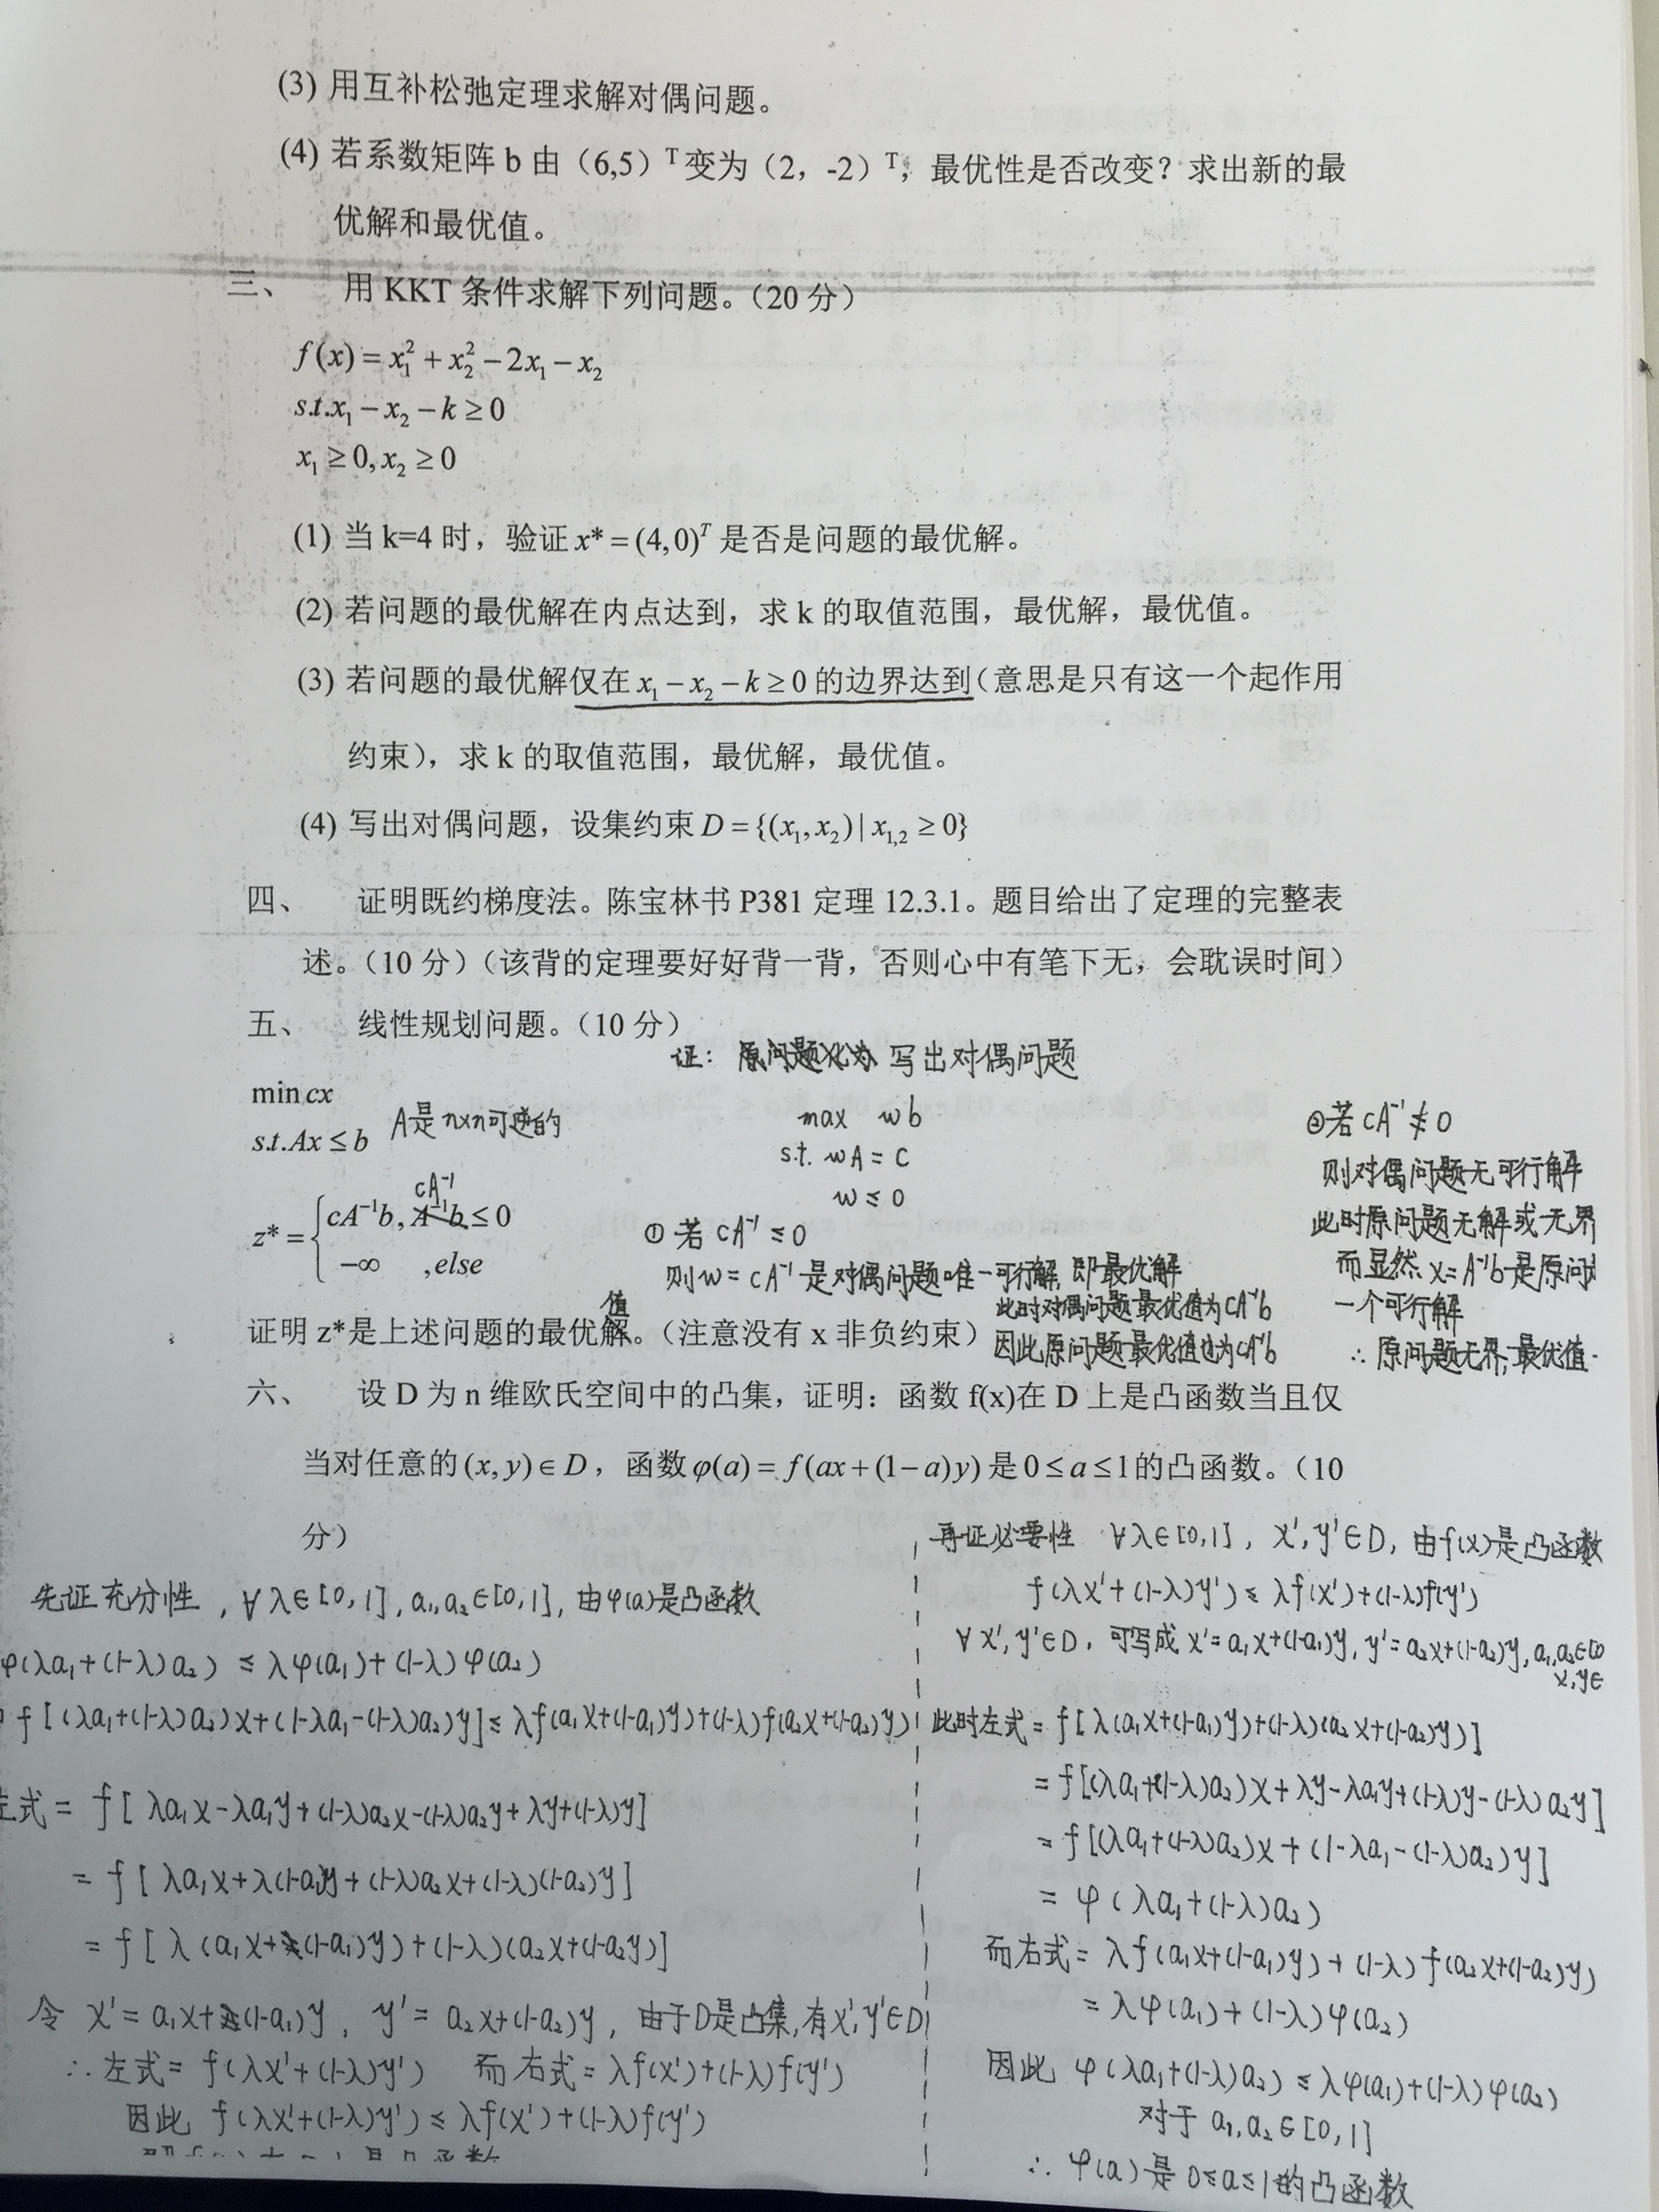 (3) 用互补松弛定理求解对偶问题。
(4) 若系数矩阵 b 由（6,5）ᵀ变为（2，-2）ᵀ，最优性是否改变？求出新的最
优解和最优值。
三、 用 KKT 条件求解下列问题。（20 分）
f(x) = x₁² + x₂² − 2x₁ − x₂
s.t. x₁ − x₂ − k ≥ 0
x₁ ≥ 0, x₂ ≥ 0
(1) 当 k=4 时，验证 x* = (4,0)ᵀ 是否是问题的最优解。
(2) 若问题的最优解在内点达到，求 k 的取值范围，最优解，最优值。
(3) 若问题的最优解仅在 x₁ − x₂ − k ≥ 0 的边界达到（意思是只有这一个起作用
约束），求 k 的取值范围，最优解，最优值。
(4) 写出对偶问题，设集约束 D = {(x₁, x₂) | x₁,₂ ≥ 0}
四、 证明既约梯度法。陈宝林书 P381 定理 12.3.1。题目给出了定理的完整表
述。（10 分）（该背的定理要好好背一背，否则心中有笔下无，会耽误时间）
五、 线性规划问题。（10 分）
证： 原问题化为 写出对偶问题
min cx
s.t. Ax ≤ b A是n×n可逆的
max wb
s.t. wA = c
w ≤ 0
z* = { cA⁻¹b, A⁻¹b ≤ 0
cA⁻¹
−∞ , else
① 若 cA⁻¹ ≤ 0
则 w = cA⁻¹ 是对偶问题唯一可行解，即最优解
此时对偶问题最优值为cA⁻¹b
因此原问题最优值也为cA⁻¹b
②若 cA⁻¹ ≰ 0
则对偶问题无可行解
此时原问题无解或无界
而显然 x=A⁻¹b 是原问
一个可行解
∴ 原问题无界，最优值-
值
证明 z*是上述问题的最优解。（注意没有 x 非负约束）
六、 设 D 为 n 维欧氏空间中的凸集，证明：函数 f(x)在 D 上是凸函数当且仅
当对任意的 (x, y) ∈ D，函数 φ(a) = f(ax + (1−a)y) 是 0 ≤ a ≤ 1 的凸函数。（10
分）
先证充分性，∀λ∈[0,1], a₁,a₂∈[0,1], 由φ(a)是凸函数
φ(λa₁+(1-λ)a₂) ≤ λφ(a₁)+(1-λ)φ(a₂)
f[(λa₁+(1-λ)a₂)x+(1-λa₁-(1-λ)a₂)y] ≤ λf(a₁x+(1-a₁)y)+(1-λ)f(a₂x+(1-a₂)y)
左式 = f[λa₁x-λa₁y+(1-λ)a₂x-(1-λ)a₂y+λy+(1-λ)y]
= f[λa₁x+λ(1-a₁)y+(1-λ)a₂x+(1-λ)(1-a₂)y]
= f[λ(a₁x+(1-a₁)y)+(1-λ)(a₂x+(1-a₂y)]
令 x' = a₁x+(1-a₁)y, y' = a₂x+(1-a₂)y, 由于D是凸集, 有x',y'∈D
∴ 左式 = f(λx'+(1-λ)y') 而右式 = λf(x')+(1-λ)f(y')
因此 f(λx'+(1-λ)y') ≤ λf(x')+(1-λ)f(y')
再证必要性 ∀λ∈[0,1], x',y'∈D, 由f(x)是凸函数
f(λx'+(1-λ)y') ≤ λf(x')+(1-λ)f(y')
∀x',y'∈D, 可写成 x'=a₁x+(1-a₁)y, y'=a₂x+(1-a₂)y, a₁,a₂∈[0
x,y∈
此时左式 = f[λ(a₁x+(1-a₁)y)+(1-λ)(a₂x+(1-a₂)y)]
= f[(λa₁+(1-λ)a₂)x+λy-λa₁y+(1-λ)y-(1-λ)a₂y]
= f[(λa₁+(1-λ)a₂)x+(1-λa₁-(1-λ)a₂)y]
= φ(λa₁+(1-λ)a₂)
而右式 = λf(a₁x+(1-a₁)y)+(1-λ)f(a₂x+(1-a₂)y)
= λφ(a₁)+(1-λ)φ(a₂)
因此 φ(λa₁+(1-λ)a₂) ≤ λφ(a₁)+(1-λ)φ(a₂)
对于 a₁,a₂∈[0,1]
∴ φ(a)是 0≤a≤1的凸函数